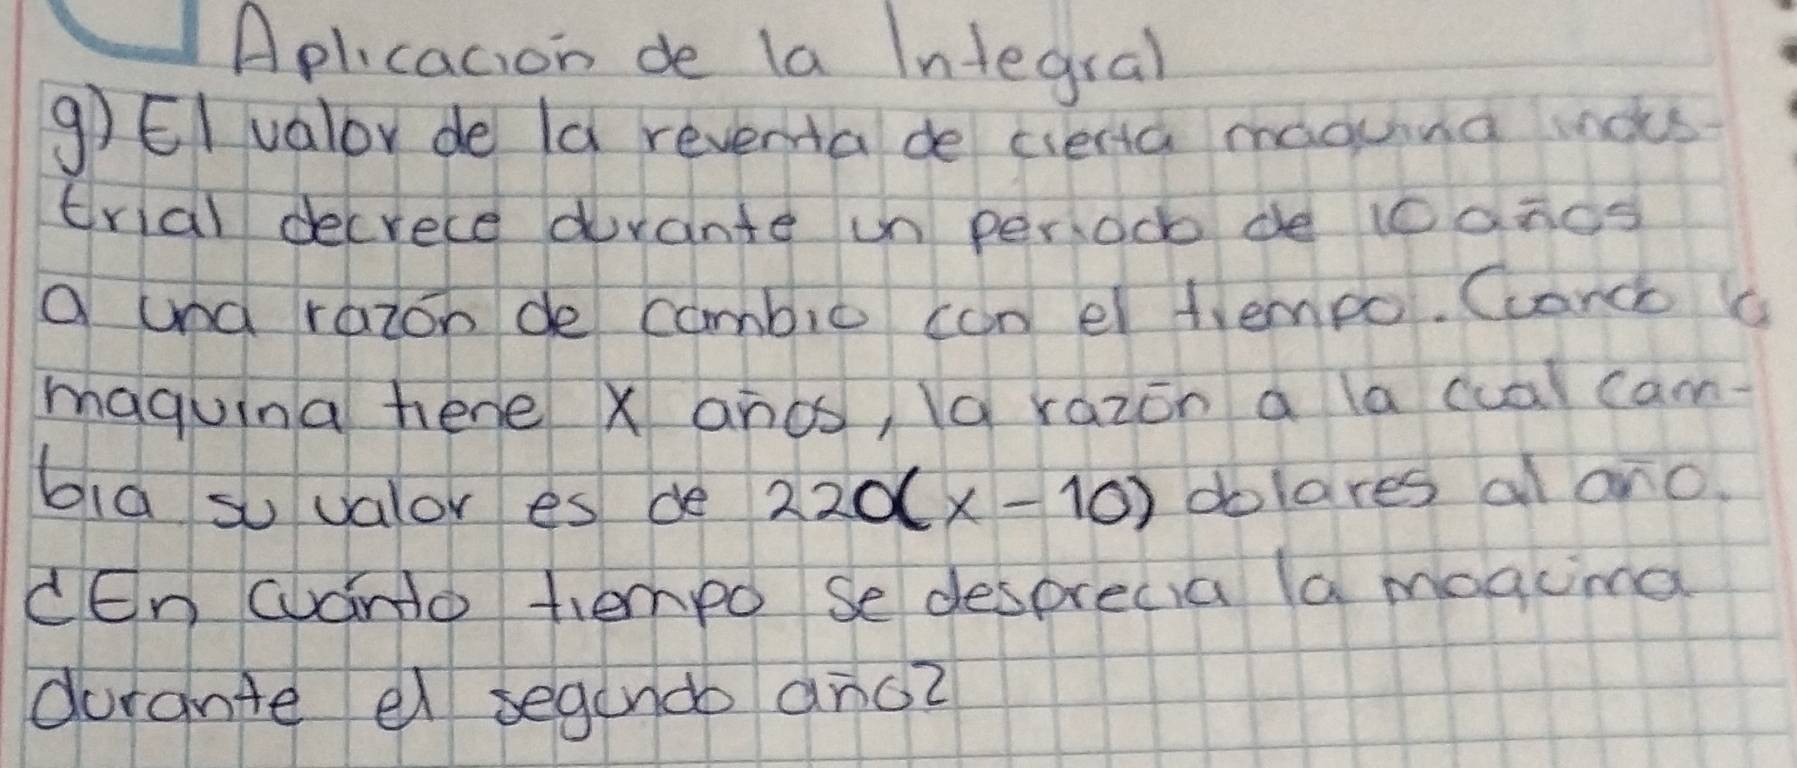 Aplicación de la Integral
g) El valor de la reventa de cierta maquina indus-
trial decrece durante un periodo de 10 años
a una razón de cambio con el tiempo. Cuando la
maquina tiene x años, la razón a la cual cam-
bia su valor es de 220(x-10) dolares al año.
¿En cuánto tiempo se desprecia la maquina
durante el segundo año?